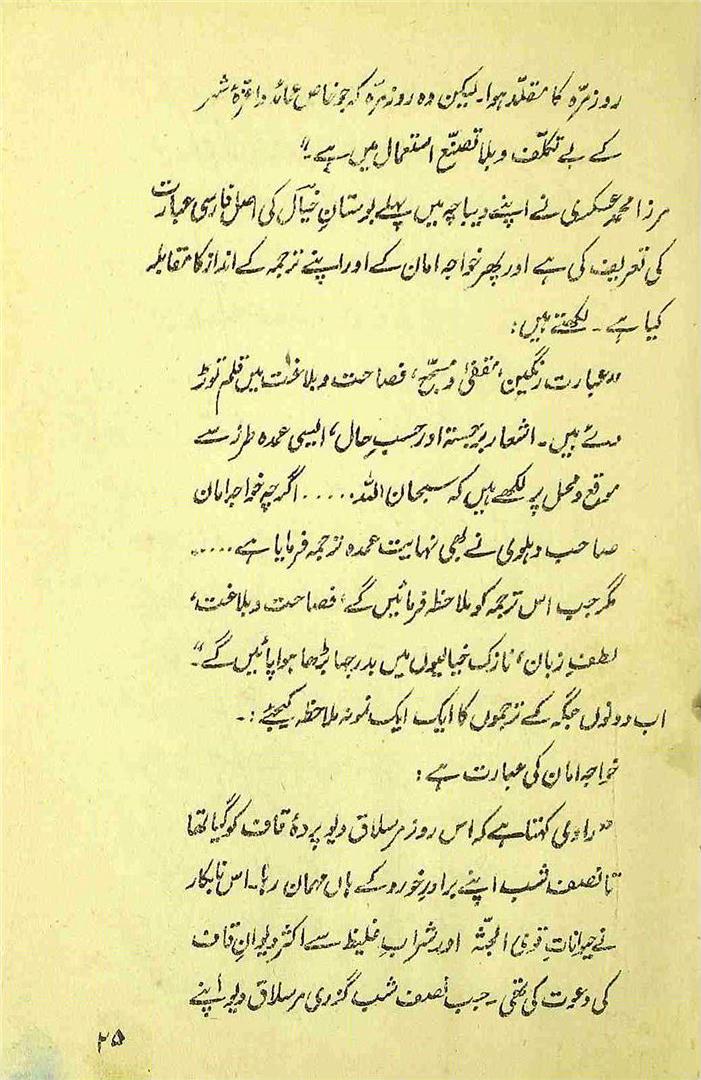 روزمرّہ کا مقلّد ہوا۔ لیکن وہ روزمرّہ کہ جو خاص عمائد و اعزّۂ شہر
کے بے تکلّف و بلا تصنّع استعمال میں ہے۔"
مرزا محمد عسکری نے اپنے دیباچہ میں پہلے بوستانِ خیال کی اصل فارسی عبارت
کی تعریف کی ہے اور پھر خواجہ امان کے اور اپنے ترجمہ کے انداز کا مقابلہ
کیا ہے۔ لکھتے ہیں:
"عبارت رنگین، مقفیٰ و مسجّع، فصاحت و بلاغت میں قلم توڑ
دئے ہیں۔ اشعار برجستہ اور حسبِ حال، ایسی عمدہ طرز سے
موقع و محل پر لکھے ہیں کہ سبحان اللہ..... اگرچہ خواجہ امان
صاحب دہلوی نے بھی نہایت عمدہ ترجمہ فرمایا ہے.....
مگر جب اس ترجمہ کو ملاحظہ فرمائیں گے، فصاحت و بلاغت،
لطفِ زبان، نازک خیالیوں میں بدرجہا بڑھا ہوا پائیں گے۔"
اب دونوں جگہ کے ترجموں کا ایک ایک نمونہ ملاحظہ کیجئے:۔
خواجہ امان کی عبارت ہے:
"راوی کہتا ہے کہ اس روز مرسلاق دیو پردۂ قاف کو گیا تھا
تا نصف شب اپنے برادرِ خورد کے ہاں مہمان رہا۔ اس نابکار
نے حیواناتِ قوی الجثّہ اور شرابِ غلیظ سے اکثر دیوانِ قاف
کی دعوت کی تھی۔ جب نصف شب گزری مرسلاق دیو اپنے
۲۵